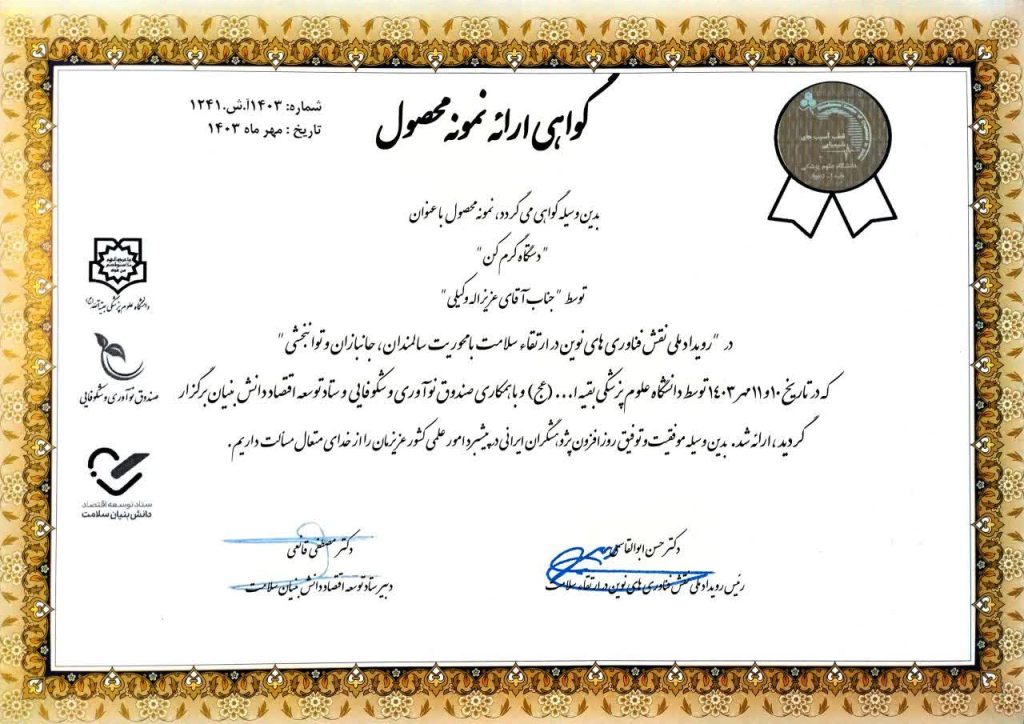 گواهی ارائه نمونه محصول
شماره: ۱۴۰۳/آ.ش.۱۲۴۱
تاریخ : مهر ماه ۱۴۰۳
بدین وسیله گواهی می گردد، نمونه محصول با عنوان
"دستگاه گرم کن"
توسط "جناب آقای عزیزاله وکیلی"
در "رویداد ملی نقش فناوری های نوین در ارتقاء سلامت با محوریت سالمندان، جانبازان و توانبخشی"
که در تاریخ ۱۰ و ۱۱ مهر ۱۴۰۳ توسط دانشگاه علوم پزشکی بقیه ا... (عج) و با همکاری صندوق نوآوری و شکوفایی و ستاد توسعه اقتصاد دانش بنیان برگزار
گردید، ارائه شد. بدین وسیله موفقیت و توفیق روزافزون پژوهشگران ایرانی در پیشبرد امور علمی کشور عزیزمان را از خدای متعال مسألت داریم.
دانشگاه علوم پزشکی بقیة الله (عج)
صندوق نوآوری و شکوفایی
ستاد توسعه اقتصاد
دانش بنیان سلامت
دکتر حسن ابوالقاسمی
رئیس رویداد ملی نقش فناوری های نوین در ارتقاء سلامت
دکتر مصطفی قانعی
دبیر ستاد توسعه اقتصاد دانش بنیان سلامت